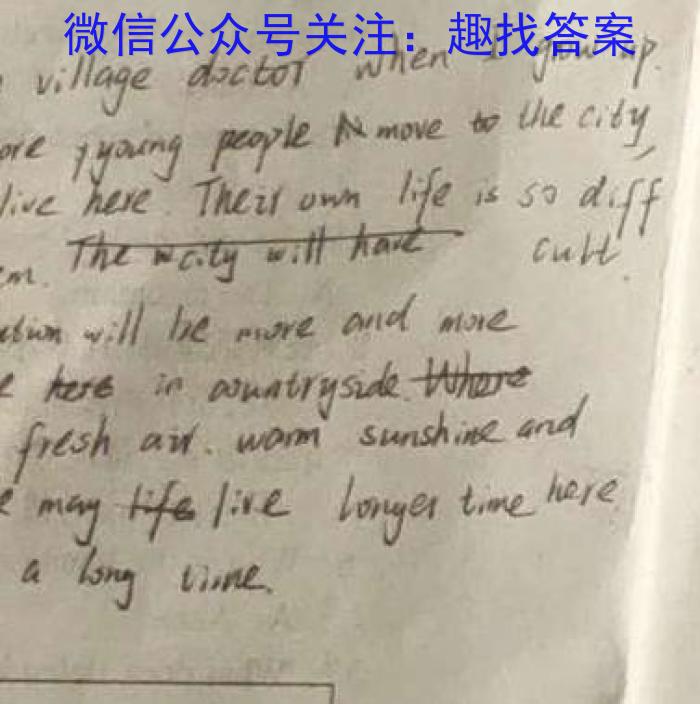 微信公众号关注：趣找答案
village doctor when I grow up.
ore young people move to the city
live here. Their own life is so diff
em. The city will have cult.
ution will be more and more
e here in countryside. Where
fresh air. warm sunshine and
e may life live longer time here.
a long time.